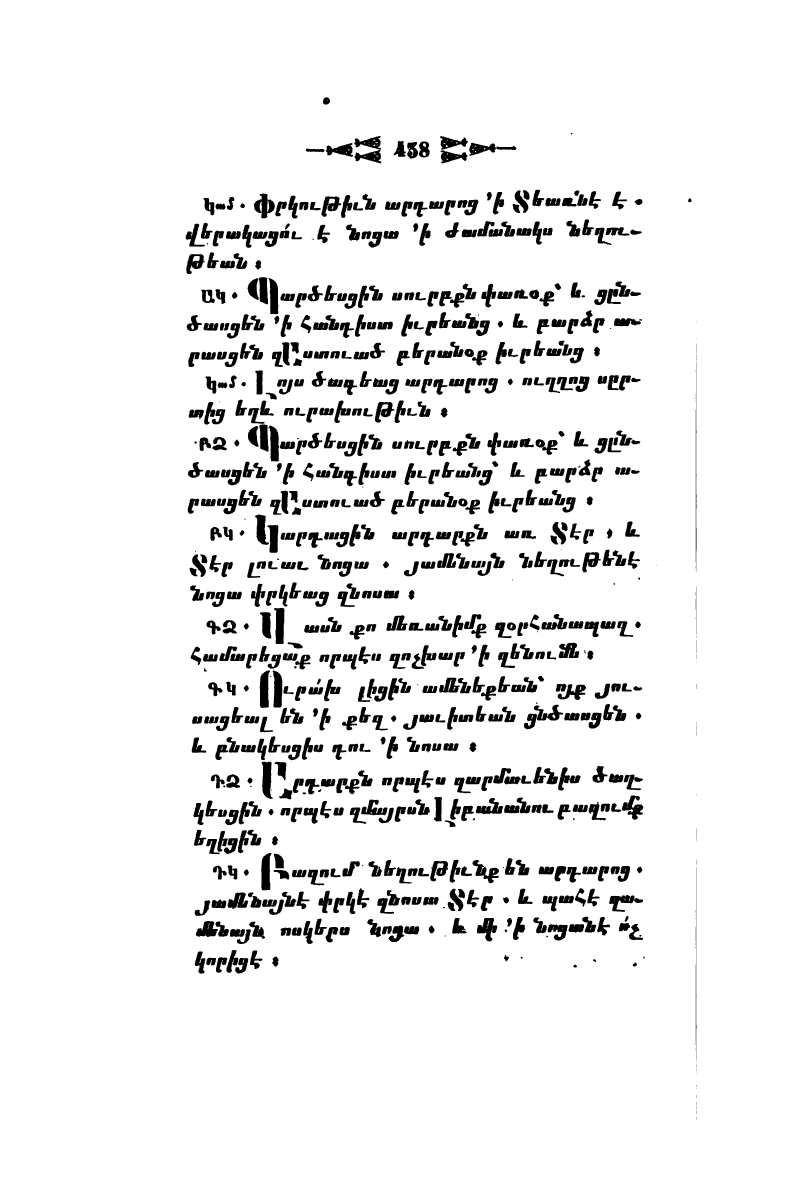 438
կամ · Փրկութիւն արդարոց ՚ի Տեառնէ է ·
վերակացո՛ւ է նոցա ՚ի ժամանակս նեղու-
թեան ։
ԱԿ · Պարծեսցին սուրբքն փառօք՝ և ցըն-
ծասցեն ՚ի հանգիստ իւրեանց · և բարձր ա-
րասցեն զԱստուած բերանօք իւրեանց ։
կամ · Լոյս ծագեաց արդարոց · ուղղոց սըր-
տից եղև ուրախութիւն ։
ԲՁ · Պարծեսցին սուրբքն փառօք՝ և ցըն-
ծասցեն ՚ի հանգիստ իւրեանց՝ և բարձր ա-
րասցեն զԱստուած բերանօք իւրեանց ։
ԲԿ · Կարդացին արդարքն առ Տէր , և
Տէր լուաւ նոցա · յամենայն նեղութենէ
նոցա փրկեաց զնոսա ։
ԳՁ · Վասն քո մեռանիմք զօրհանապաղ ·
համարեցաք որպէս զոչխար ՚ի զենումն ։
ԳԿ · Ուրա՛խ լիցին ամենեքեան՝ ոյք յու-
սացեալ են ՚ի քեզ · յաւիտեան ցնծասցեն ·
և բնակեսցիս դու ՚ի նոսա ։
ԴՁ · Արդարքն որպէս զարմաւենիս ծաղ-
կեսցին · որպէս զմայրսն Լիբանանու բազումք
եղիցին ։
ԴԿ · Բազում նեղութիւնք են արդարոց ·
յամենայնէ փրկէ զնոսա Տէր · և պահէ զա-
մենայն ոսկերս նոցա · և մի ՚ի նոցանէ ո՛չ
կորիցէ ։